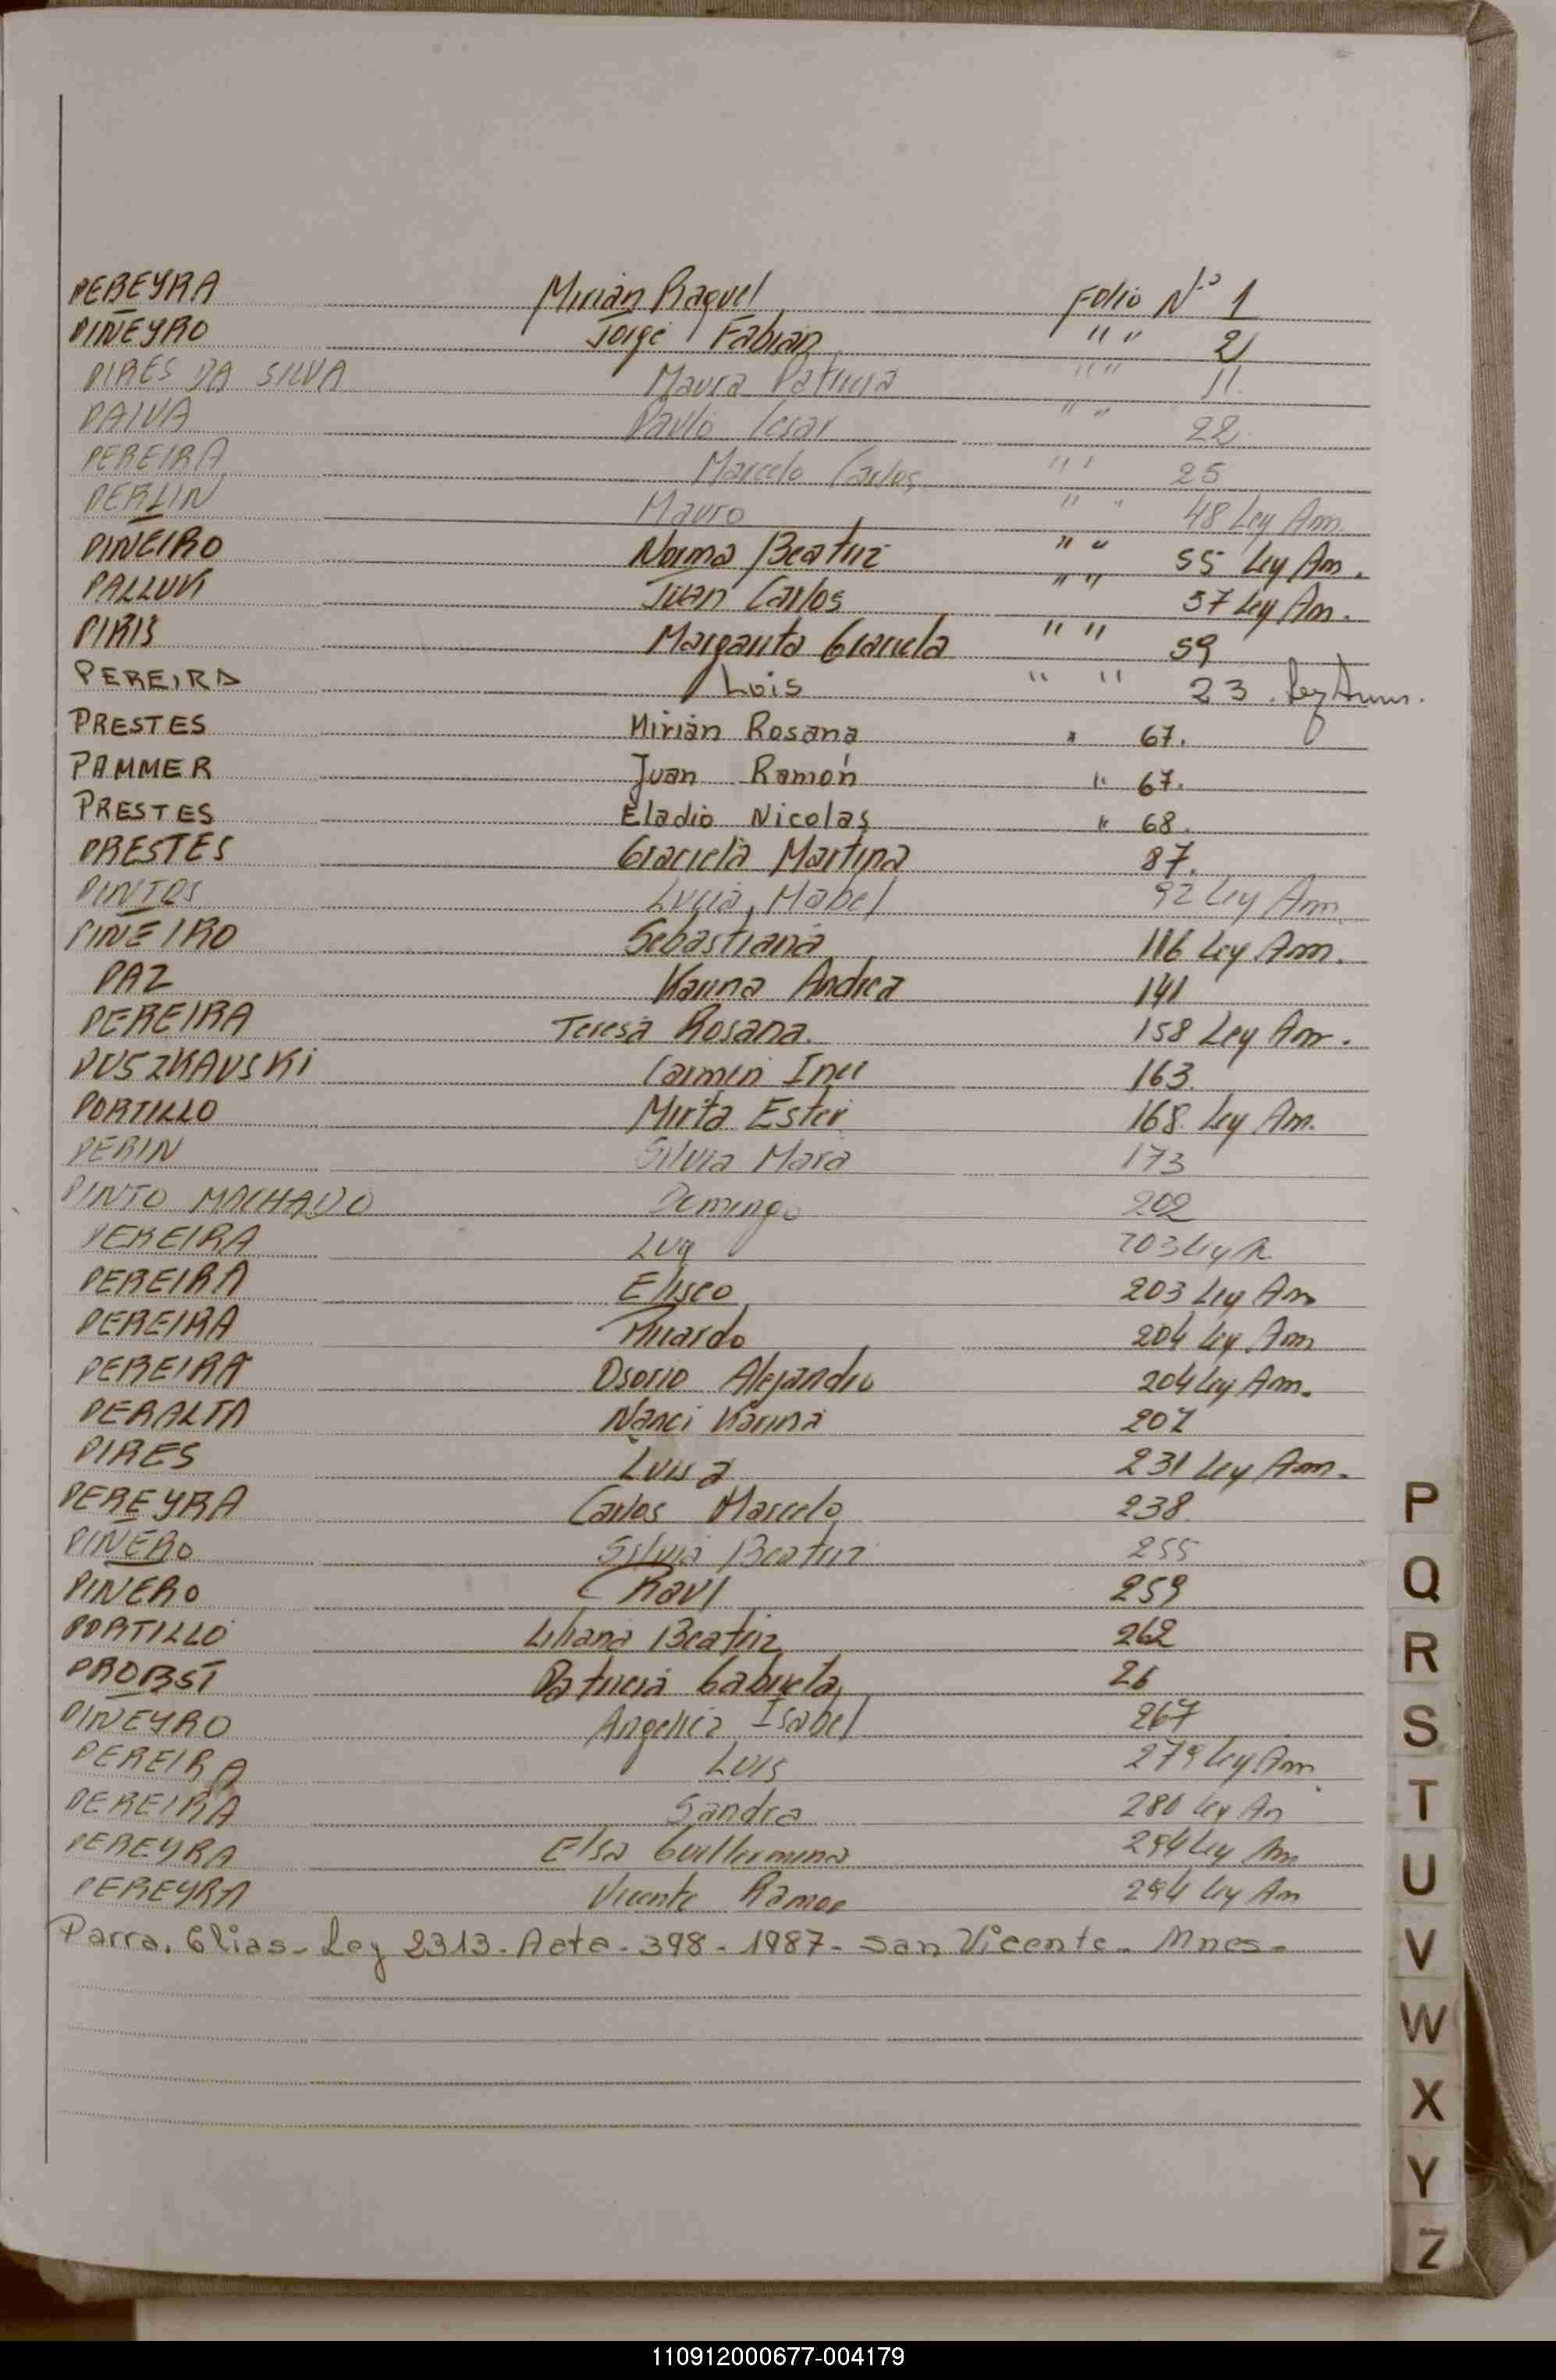 PEREYRA Mirian Raquel Folio Nº 1
PIÑEYRO Jorge Fabian " " 2
PIRES DA SILVA Maura Patricia " " 11
PAIVA Paulo Cesar " " 22
PEREIRA Marcelo Carlos " " 25
PERLIN Mauro " " 48 Ley Am.
PIÑEIRO Norma Beatriz " " 55 Ley Am.
Juan Carlos " " 57 Ley Am.
PIRIS Margarita Graciela " " 59
PEREIRA Luis " " 23. Ley Amn.
PRESTES Mirian Rosana " 67.
PAMMER Juan Ramón " 67.
PRESTES Eladio Nicolas " 68.
PRESTES Graciela Martina 87.
PINTOS Lucia Mabel 92 Ley Am
PIÑEIRO Sebastiana 116 Ley Am.
PAZ Karina Andrea 141
PEREIRA Teresa Rosana. 158 Ley Am.
PUSZKAUSKI Carmen Ines 163.
PORTILLO Mirta Ester 168. Ley Am.
PERIN Silvia Mara 173
PINTO MACHADO Domingo 202
PEREIRA 203 Ley A.
PEREIRA Eliseo 203 Ley Am
PEREIRA Ricardo 204 Ley. Am
PEREIRA Osorio Alejandro 204 Ley Am.
PERALTA Nanci Karina 207
PIRES Luisa 231 Ley Am.
PEREYRA Carlos Marcelo 238.
PIÑERO Silvia Beatriz 255
PIÑERO Raul 259
PORTILLO Liliana Beatriz 262
PROBST Patricia Gabriela 26
PIÑEYRO Angelica Isabel 267
PEREIRA Luis 279 Ley Am
PEREIRA Sandra 280 Ley An
PEREYRA Elsa Guillermina 294 Ley Am
PEREYRA Vicente Ramon 294 Ley Am
Parra, Elias - Ley 2313 - Acta - 398 - 1987 - San Vicente - Mnes -
P
Q
R
S
T
U
V
W
X
Y
Z
110912000677-004179